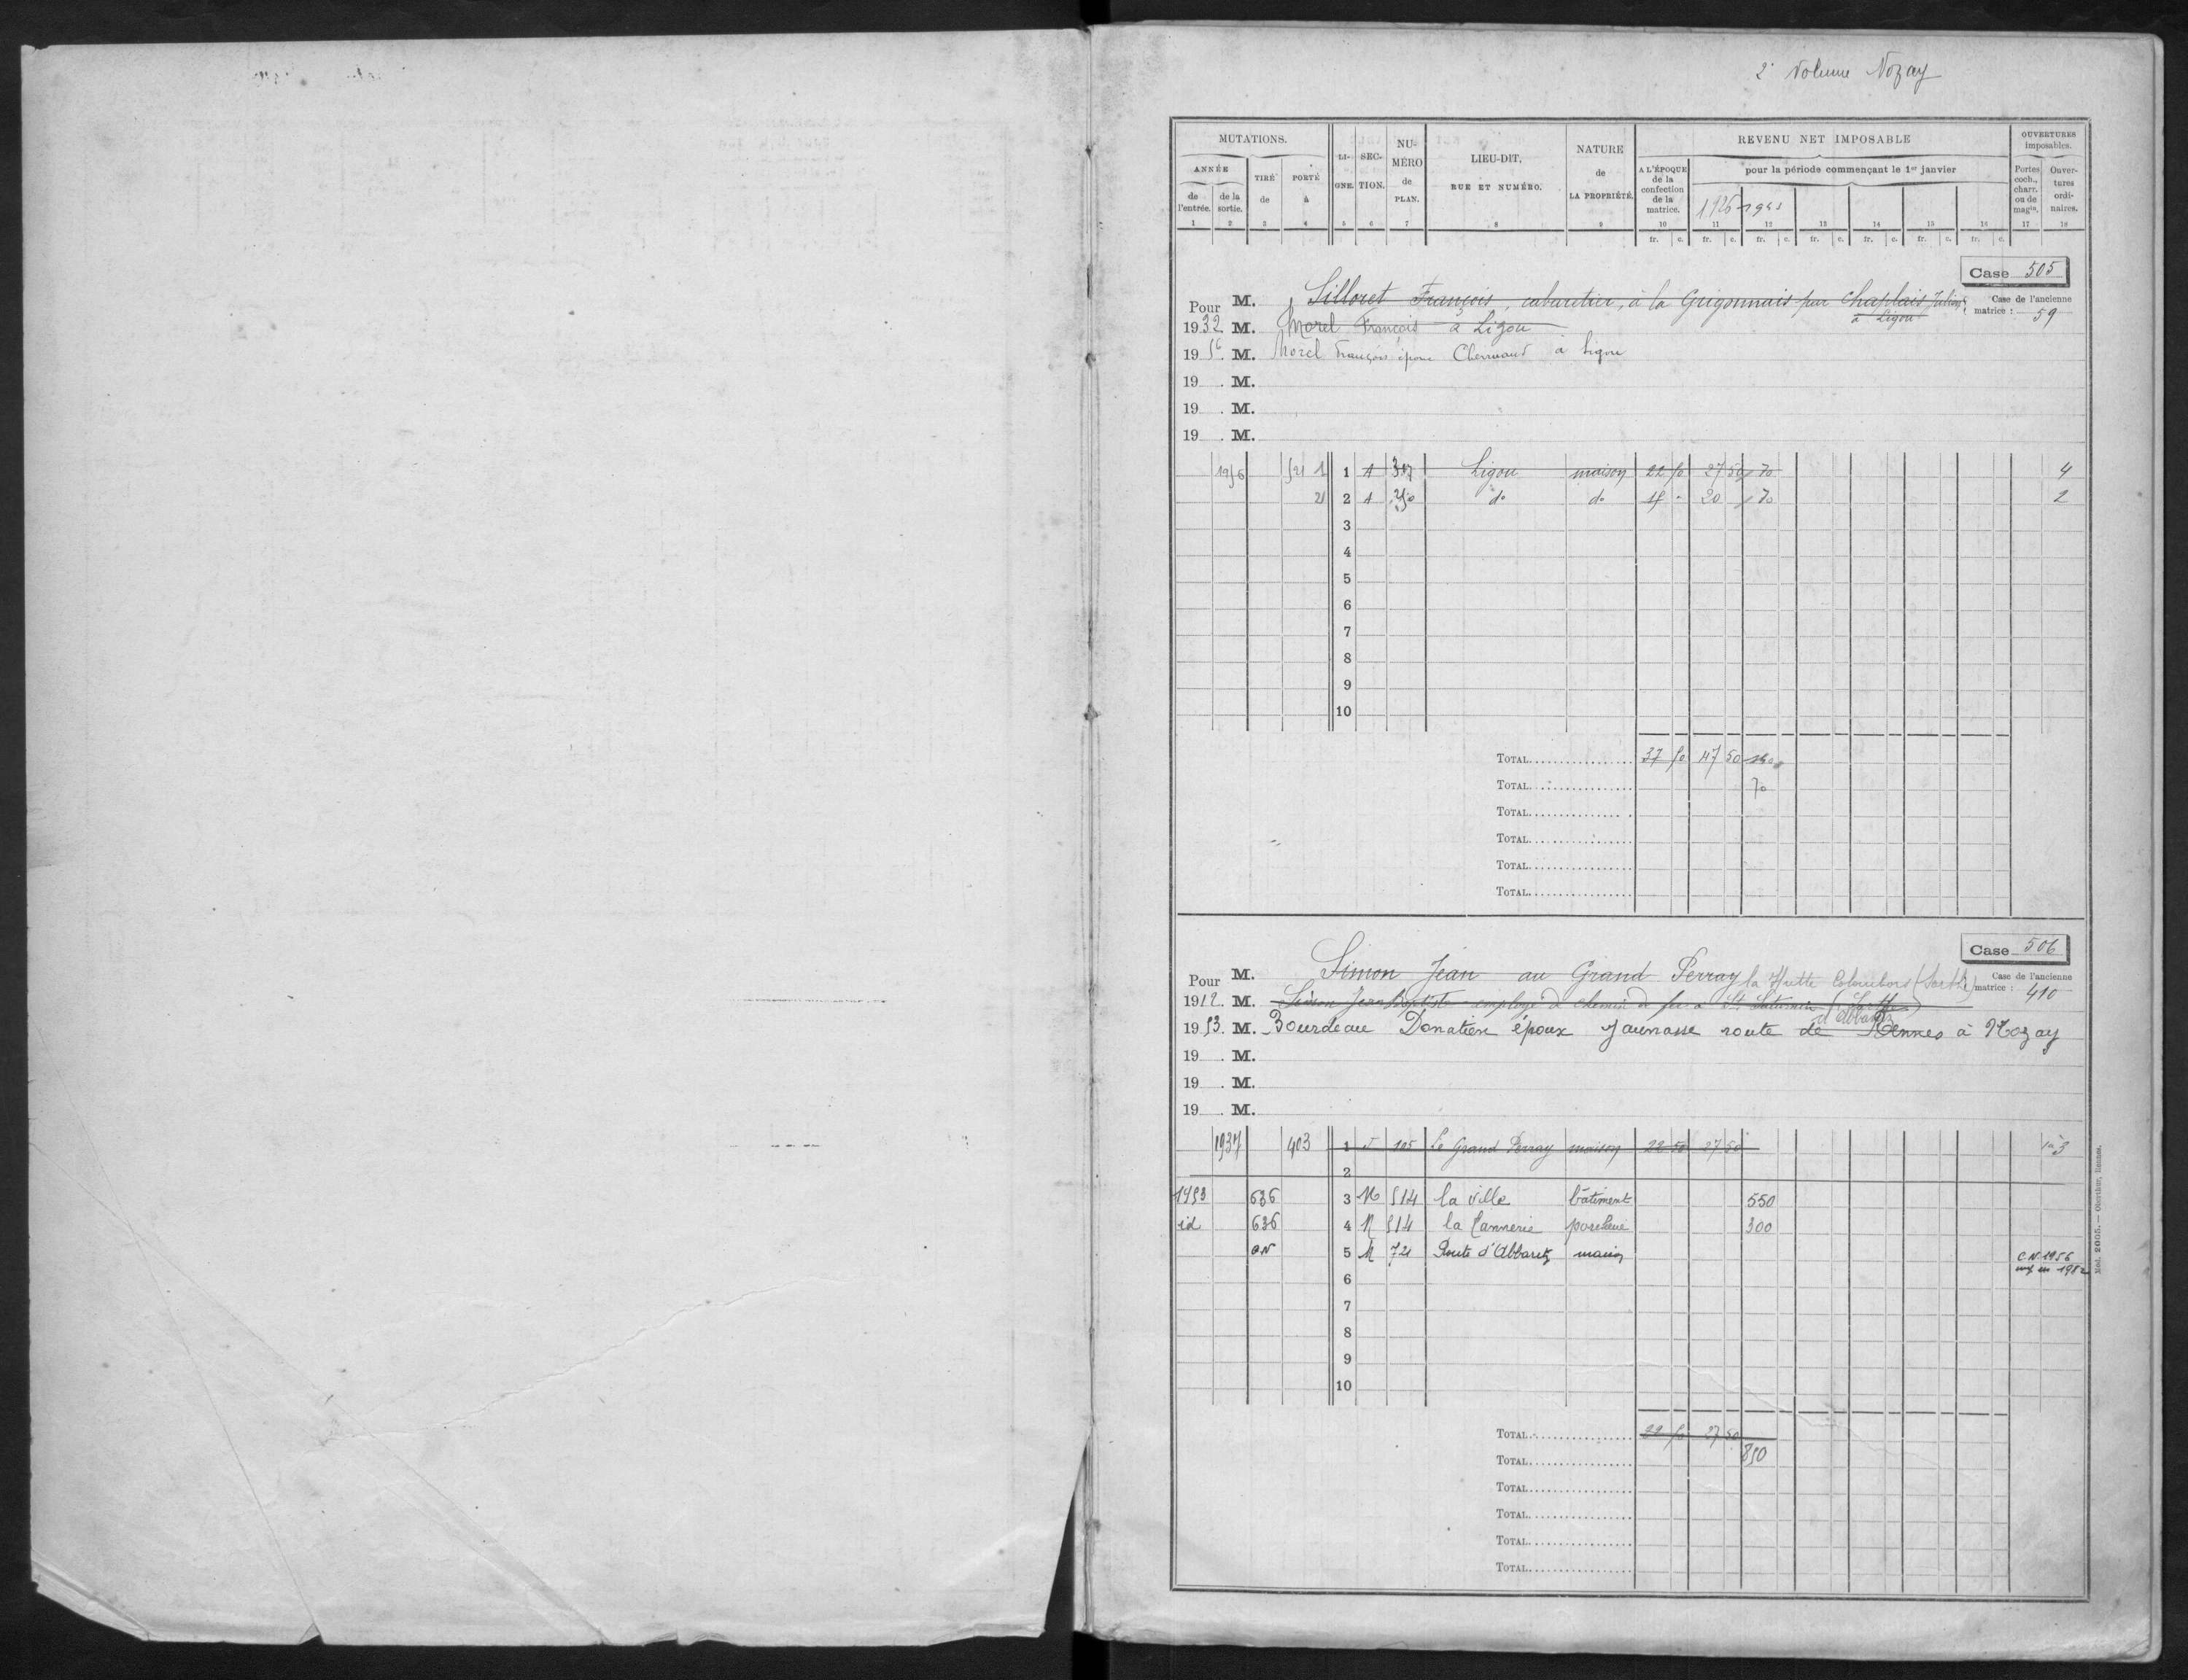 2e Volume Nozay
MUTATIONS. LI-GNE. SEC-TION. NU-MÉRO de PLAN. LIEU-DIT. RUE ET NUMÉRO. NATURE de LA PROPRIÉTÉ. REVENU NET IMPOSABLE OUVERTURES imposables.
ANNÉE TIRÉ de PORTÉ à A L'ÉPOQUE de la confection de la matrice. pour la période commençant le 1er janvier Portes coch., charr. ou de magin. Ouver-tures ordi-naires.
de l'entrée. de la sortie. 1926 1943
1 2 3 4 5 6 7 8 9 10 11 12 13 14 15 16 17 18
fr. c. fr. c. fr. c. fr. c. fr. c. fr. c. fr. c.
Case 505
Pour M. Silloret François, cabaretier, à la Grigonnais par Chaplais Julien
à Ligou
Case de l'ancienne matrice : 59
1932 M. Morel François à Ligou
1956 M. Morel François époux à Ligou
19 . M.
19 . M.
19 . M.
1956 521 1 1 A 307 Ligou maison 22 50 27 50 70 4
2 2 A do do 15 - 20 70 2
3
4
5
6
7
8
9
10
TOTAL 37 50 47 50
TOTAL 70
TOTAL
TOTAL
TOTAL
TOTAL
Case 506
Pour M. Simon Jean au Grand Perray la Hutte (Sarthe)
Case de l'ancienne matrice : 410
1912 M. Simon Jean Baptiste employé de chemin de fer à St Saturnin (Sarthe)
d'Abbaretz
1953. M. Bourdeau Donatien époux Jaunasse route de Rennes à Nozay
19 . M.
19 . M.
19 . M.
1937 403 1 J 105 Le Grand Perray maison 22 50 27 50 3
2
1953 636 3 M 514 la ville bâtiment 550
id 636 4 M 514 la Tannerie porcherie 300
CN 5 M 721 Route d'Abbaretz maison C.N. 1956
imp en 1982
6
7
8
9
10
TOTAL 22 50 27 50
TOTAL 850
TOTAL
TOTAL
TOTAL
TOTAL
Mod. 2005. — Oberthur, Rennes.